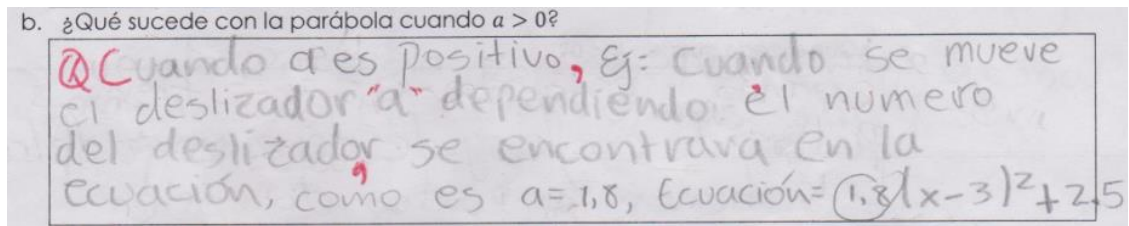 b. ¿Qué sucede con la parábola cuando a > 0?
@Cuando a es positivo, Ej: Cuando se mueve
el deslizador "a" dependiendo él numero
del deslizador se encontrara en la
ecuación, como es a= 1,8, Ecuación= (1,8)(x-3)²+2,5